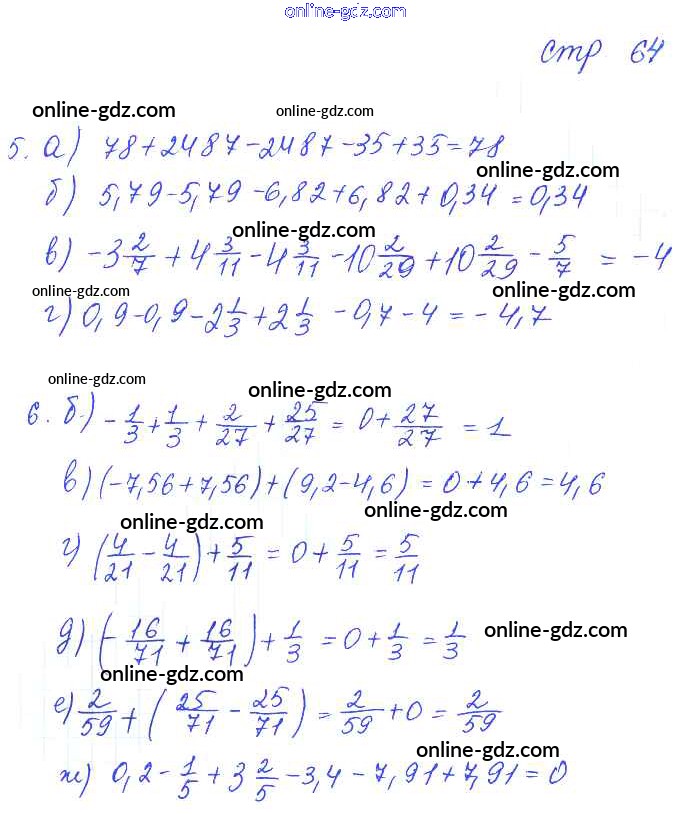 online-gdz.com
стр 64
online-gdz.com online-gdz.com
5. а) 78+2487-2487-35+35=78
online-gdz.com
б) 5,79-5,79-6,82+6,82+0,34=0,34
online-gdz.com
в) -3 2/7 + 4 3/11 - 4 3/11 - 10 2/29 + 10 2/29 - 5/7 = -4
online-gdz.com online-gdz.com
г) 0,9-0,9-2 1/3 + 2 1/3 - 0,7 - 4 = -4,7
online-gdz.com
online-gdz.com
6. б) -1/3 + 1/3 + 2/27 + 25/27 = 0 + 27/27 = 1
online-gdz.com
в) (-7,56+7,56)+(9,2-4,6)=0+4,6=4,6
online-gdz.com
online-gdz.com
г) (4/21 - 4/21) + 5/11 = 0 + 5/11 = 5/11
д) (-16/71 + 16/71) + 1/3 = 0 + 1/3 = 1/3
online-gdz.com
online-gdz.com
е) 2/59 + (25/71 - 25/71) = 2/59 + 0 = 2/59
online-gdz.com
ж) 0,2 - 1/5 + 3 2/5 - 3,4 - 7,91 + 7,91 = 0
online-gdz.com